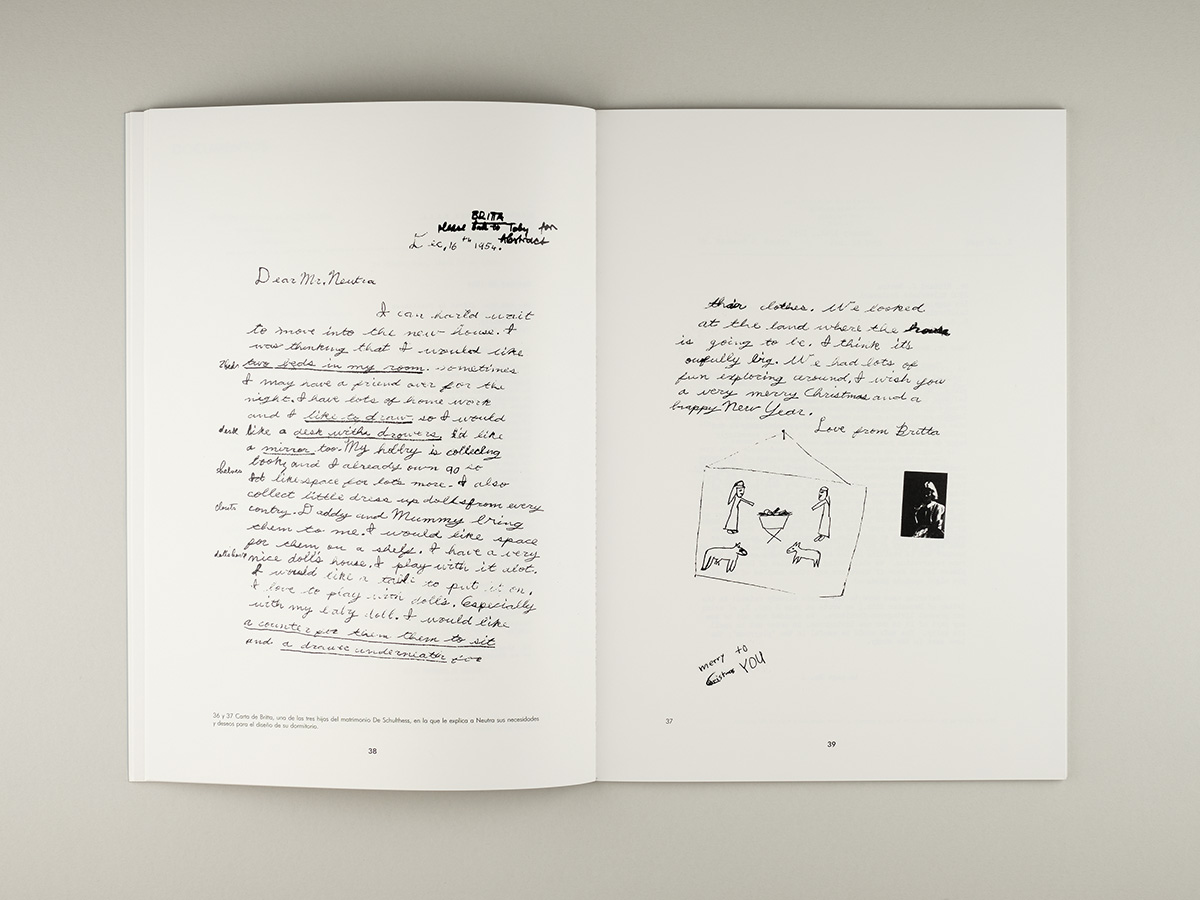 BRITTA
Please talk to Toby for
Abstract
Dec, 16th 1954.
Dear Mr. Neutra
I can harld wait
to move into the new house. I
was thinking that I would like
two beds in my room. sometimes
I may have a friend over for the
night. I have lots of home work
and I like to draw so I would
desk like a desk withe drowers. I'd like
a mirror too. My hobby is collecting
books and I already own 90 so
shelves I like space for lots more. I also
collect little dress up dolls from every
contry. Daddy and Mummy bring
them to me. I would like space
for them on a shelf. I have a very
dolls house nice doll's house. I play with it alot.
I would like a table to put it on.
I love to play with doll's. Especially
with my baby doll. I would like
a counter for them them to sit
and a drawe underneath for
36 y 37 Carta de Britta, una de las tres hijas del matrimonio De Schulthess, en la que le explica a Neutra sus necesidades
y deseos para el diseño de su dormitorio.
38
their clothes. We looked
at the land where the house
is going to be. I think it's
oufully big. We had lots of
fun exploring around. I wish you
a very merry Christmas and a
happy New Year.
Love from Britta
merry to
Christmas YOU
37
39